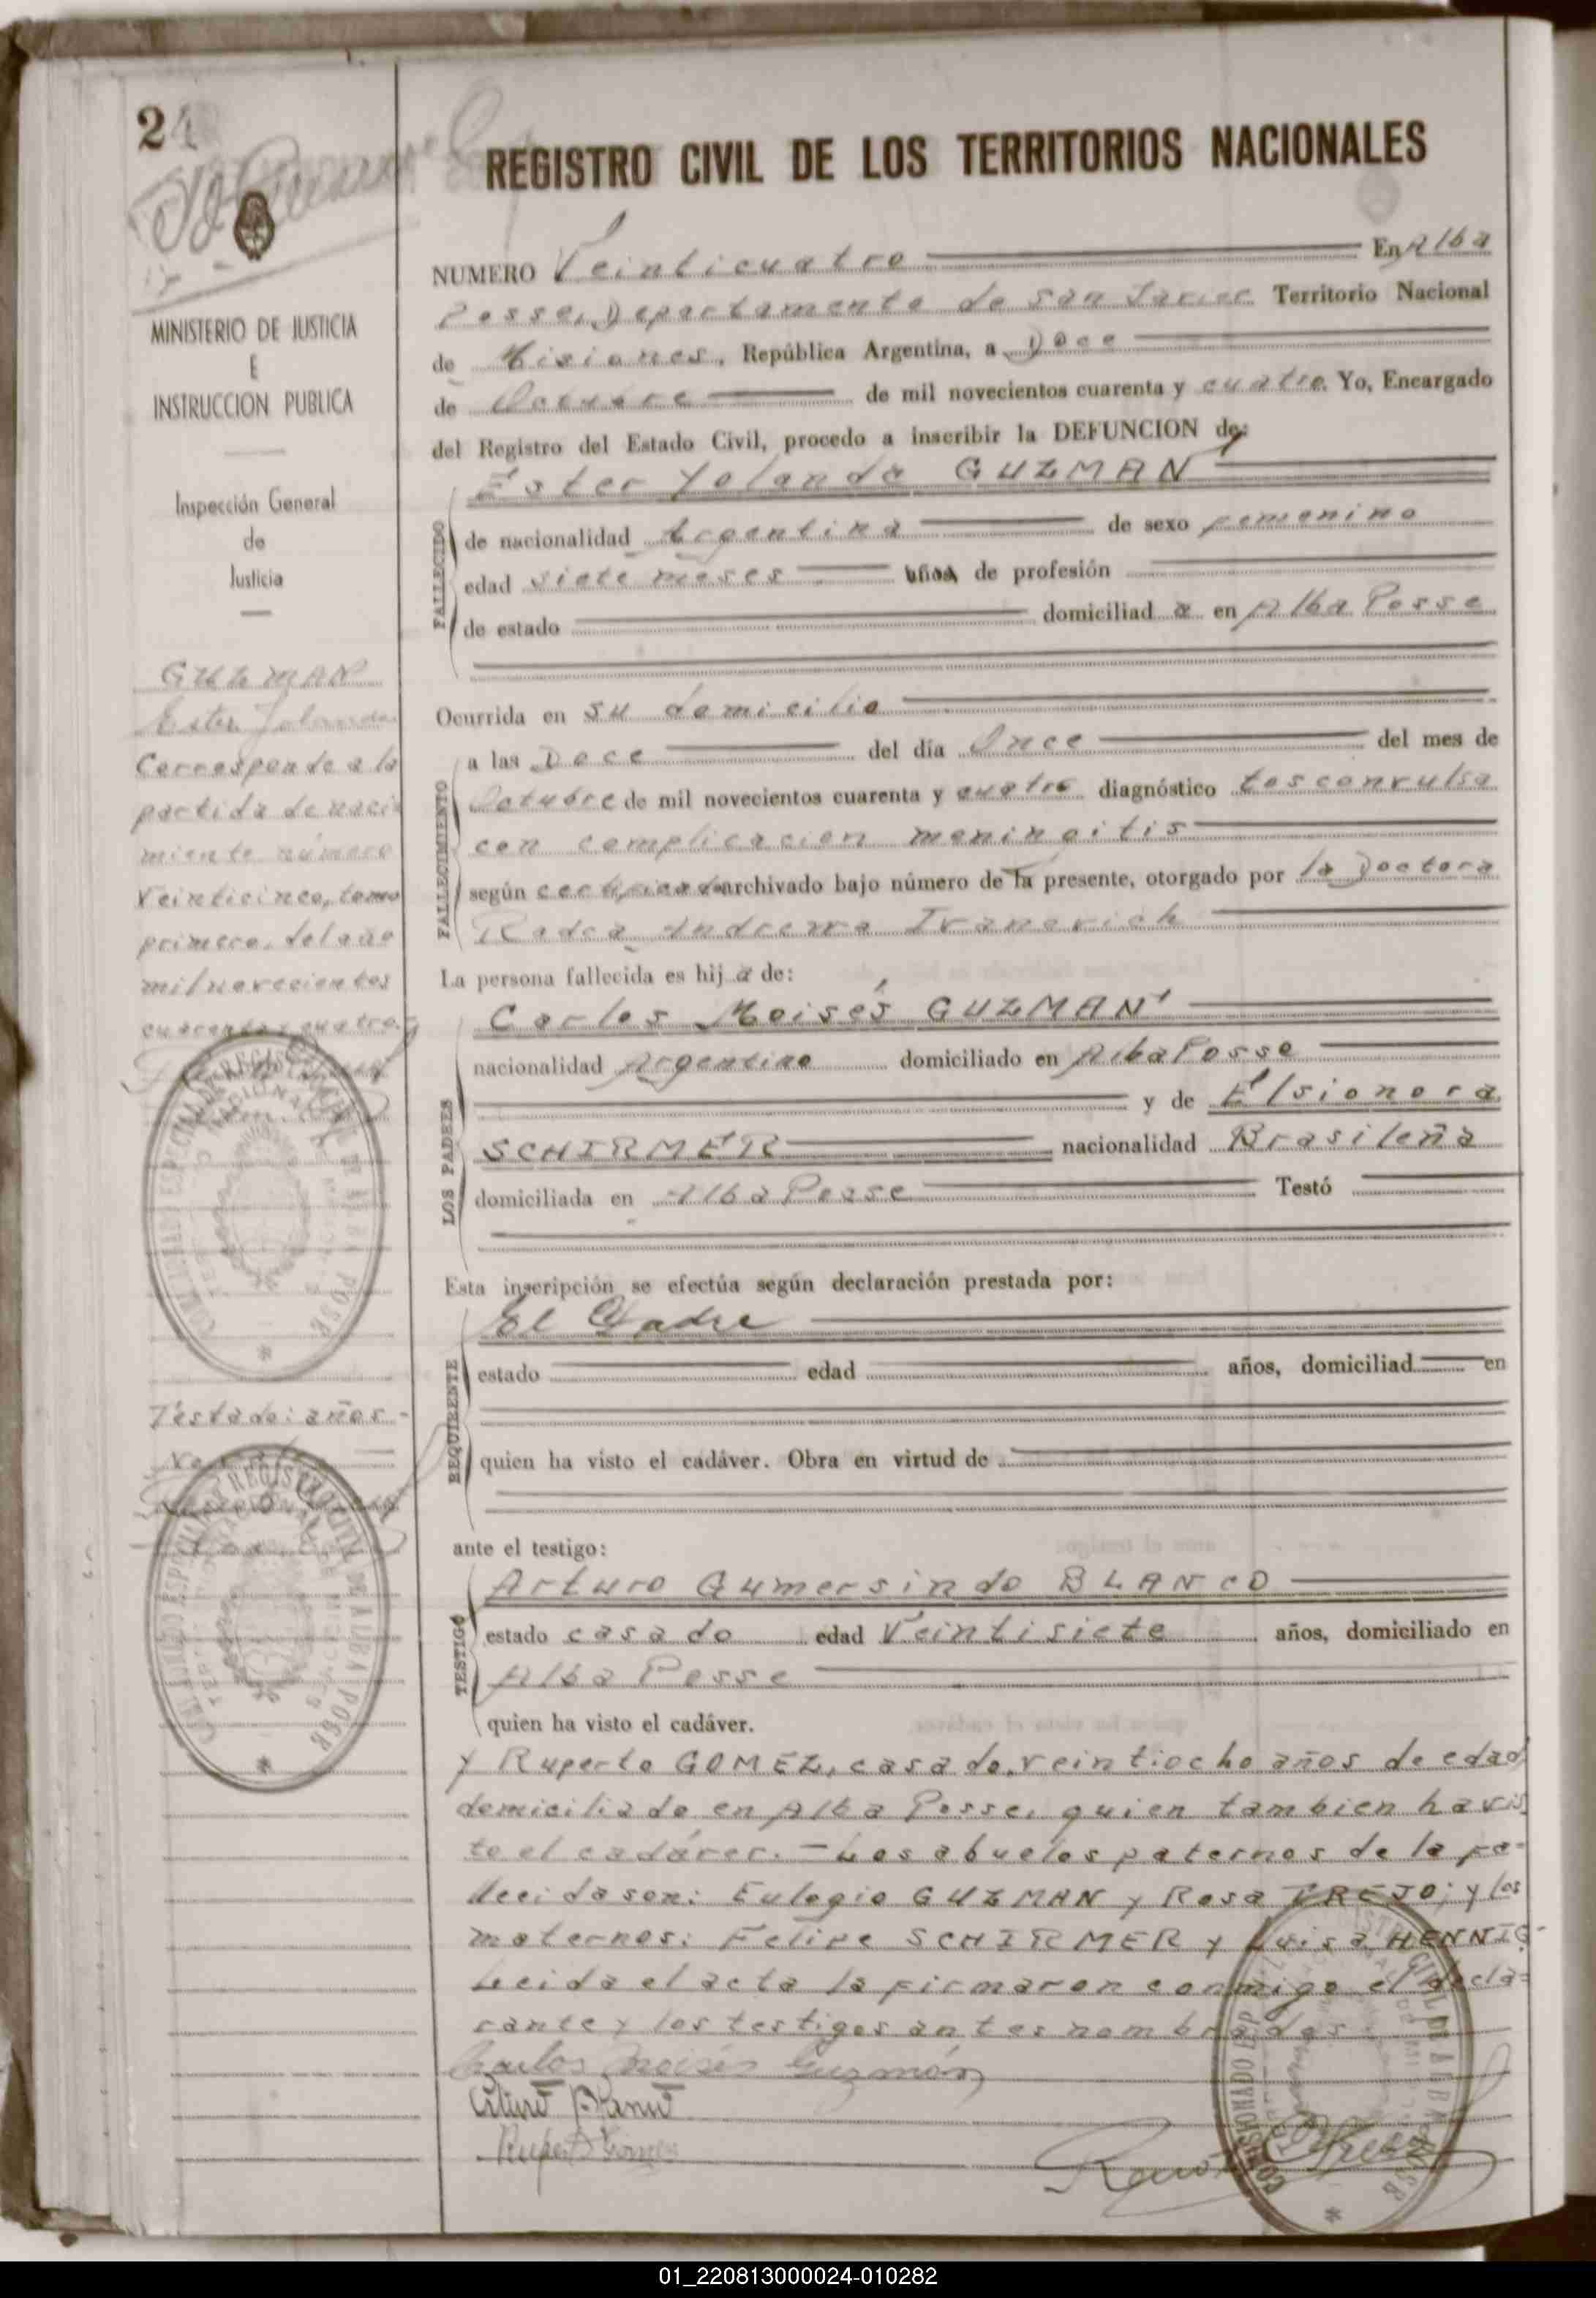 24
REGISTRO CIVIL DE LOS TERRITORIOS NACIONALES
MINISTERIO DE JUSTICIA
E
INSTRUCCION PUBLICA
Inspección General
de
Justicia
GUZMAN
Ester Yolanda
Corresponde a la
partida de naci
miento número
Veinticinco, tomo
primero, del año
mil novecientos
cuarenta y cuatro.
Testado: años-
NUMERO Veinticuatro En Alba
Posse, Departamento de San Javier Territorio Nacional
de Misiones, República Argentina, a Doce
de Octubre de mil novecientos cuarenta y cuatro. Yo, Encargado
del Registro del Estado Civil, procedo a inscribir la DEFUNCION de:
FALLECIDO
Ester Yolanda GUZMAN
de nacionalidad Argentina de sexo femenino
edad siete meses años de profesión
de estado domiciliad a en Alba Posse
Ocurrida en su domicilio
FALLECIMIENTO
a las Doce del día Once del mes de
Octubre de mil novecientos cuarenta y cuatro diagnóstico tos convulsa
con complicacion meningitis
según certificado archivado bajo número de la presente, otorgado por la Doctora
Radca Andrewa Ivanovich
La persona fallecida es hij a de:
LOS PADRES
Carlos Moisés GUZMAN
nacionalidad Argentino domiciliado en Alba Posse
y de Elsionora
SCHIRMER nacionalidad Brasileña
domiciliada en Alba Posse Testó
Esta inscripción se efectúa según declaración prestada por:
REQUIRENTE
El Padre
estado edad años, domiciliad en
quien ha visto el cadáver. Obra en virtud de
ante el testigo:
TESTIGO
Arturo Gumersindo BLANCO
estado casado edad Veintisiete años, domiciliado en
Alba Posse
quien ha visto el cadáver.
y Ruperto GOMEZ, casado, veintiocho años de edad,
domiciliado en Alba Posse, quien tambien ha vis
to el cadáver. - Los abuelos paternos de la fa-
llecida son: Eulogio GUZMAN y Rosa TREJO; y los
maternos: Felipe SCHIRMER y Luisa HENNIG-
Leida el acta la firmaron conmigo el decla-
rante y los testigos antes nombrados.
Carlos Moisés Guzmán
Arturo Blanco
Ruperto Gomez
01_220813000024-010282